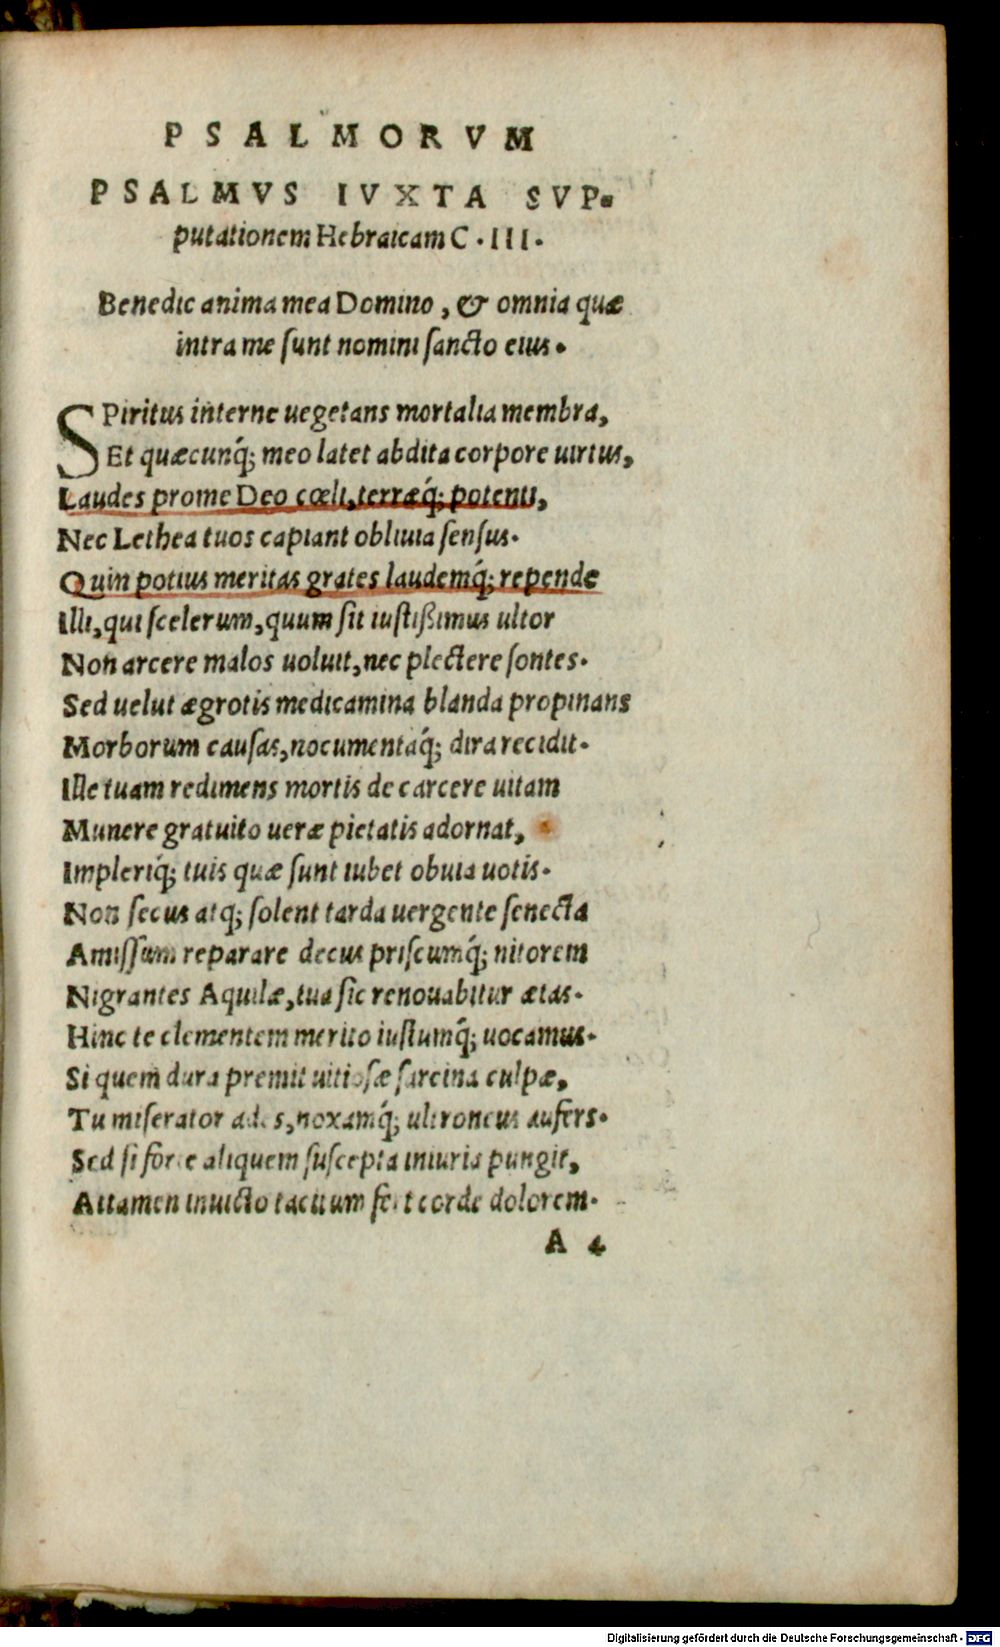 PSALMORVM
PSALMVS IVXTA SVP-
putationem Hebraicam C.III.
Benedic anima mea Domino, & omnia quæ
intra me sunt nomini sancto eius.
SPiritus interne uegetans mortalia membra,
Et quæcunq́; meo latet abdita corpore uirtus,
Laudes prome Deo cœli, terræq́; potenti,
Nec Lethea tuos capiant obliuia sensus.
Quin potius meritas grates laudemq́; repende
Illi, qui scelerum, quum sit iustißimus ultor
Non arcere malos uoluit, nec plectere sontes.
Sed uelut ægrotis medicamina blanda propinans
Morborum causas, nocumentaq́; dira recidit.
Ille tuam redimens mortis de carcere uitam
Munere gratuito ueræ pietatis adornat,
Impleriq́; tuis quæ sunt iubet obuia uotis.
Non secus atq; solent tarda uergente senecta
Amissum reparare decus priscumq́; nitorem
Nigrantes Aquilæ, tua sic renouabitur ætas.
Hinc te clementem merito iustumq́; uocamus.
Si quem dura premit uitiosæ sarcina culpæ,
Tu miserator ades, noxamq́; ultroneus aufers.
Sed si forte aliquem suscepta iniuria pungit,
Attamen inuicto tacitum fert corde dolorem.
A 4
Digitalisierung gefördert durch die Deutsche Forschungsgemeinschaft - DFG